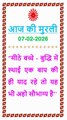 आज की मुरली
07-02-2026
"मीठे बच्चे - बुद्धि में
स्थाई एक बाप की
ही याद रहे तो यह
भी अहो सौभाग्य है"